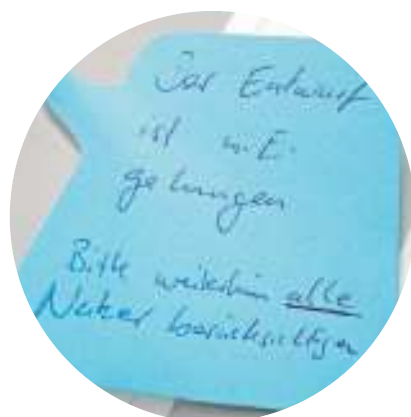 Der Entwurf
ist m.E.
gelungen
Bitte weiterhin alle
Nutzer berücksichtigen